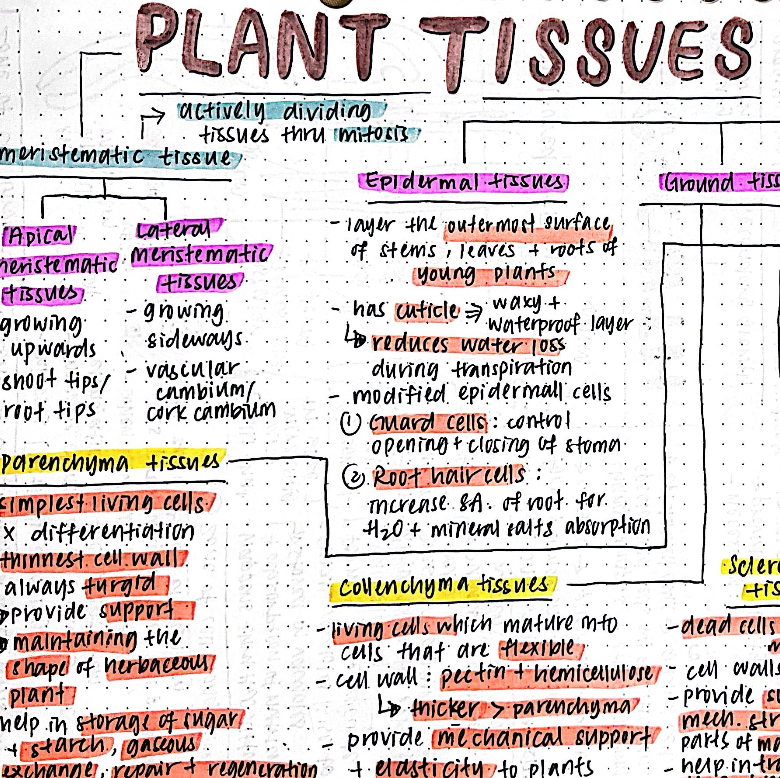 PLANT TISSUES
↳ actively dividing
tissues thru mitosis
meristematic tissue
Apical
meristematic
tissues
growing
upwards
shoot tips/
root tips
Lateral
meristematic
tissues
- growing
sideways
- vascular
cambium/
cork cambium
Epidermal tissues
- layer the outermost surface
of stems, leaves + roots of
young plants
- has cuticle ⇒ waxy +
waterproof layer
↳ reduces water loss
during transpiration
- modified epidermall cells
① Guard cells : control
opening + closing of stoma
② Root hair cells :
increase SA. of root for
H₂O + mineral salts absorption
Ground
parenchyma tissues
simplest living cells
x differentiation
thinnest cell wall
always turgid
provide support
maintaining the
shape of herbaceous
plant
help in storage of sugar
+ starch, gaseous
exchange, repair + regeneration
Collenchyma tissues
- living cells which mature into
cells that are flexible
- cell wall : pectin + hemicellulose
↳ thicker > parenchyma
- provide mechanical support
+ elasticity to plants
- dead cells
- cell walls
- provide
mech.
parts of
- help in